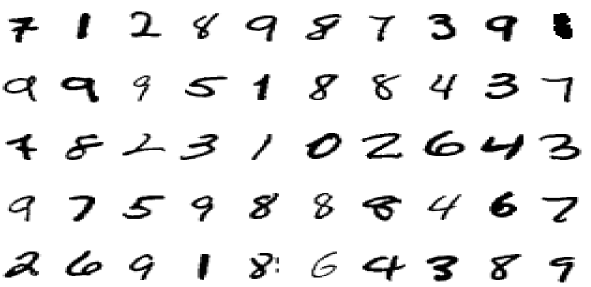 7 1 2 8 9 8 7 3 9 8
9 9 9 5 1 8 8 4 3 7
7 8 2 3 1 0 2 6 4 3
9 7 5 9 8 8 8 4 6 7
2 6 9 1 8: 6 4 3 8 9